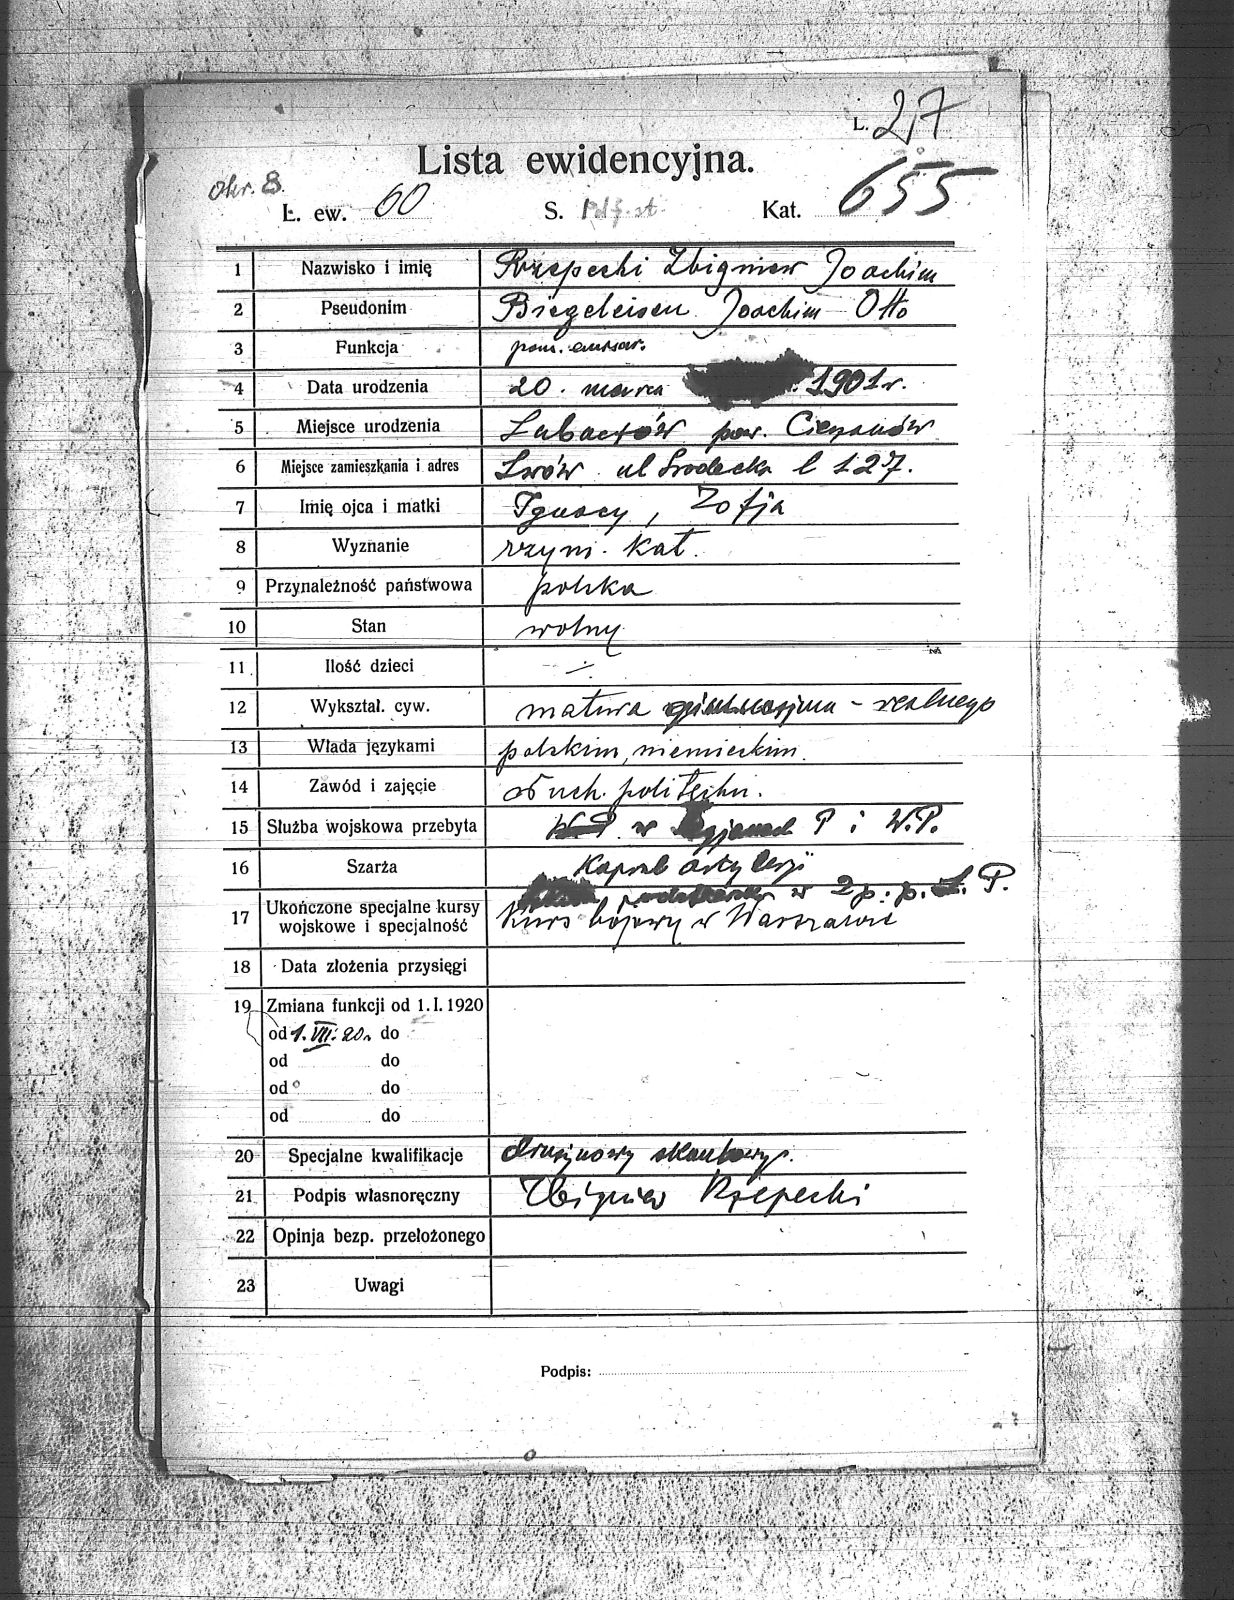 L. 217
Lista ewidencyjna.
okr. 8.
L. ew. 60 S. Kat. 655
1 Nazwisko i imię Rzepecki Zbigniew Joachim
2 Pseudonim Biegeleisen Joachim Otto
3 Funkcja pom. emisar.
4 Data urodzenia 20. marca 1901 r.
5 Miejsce urodzenia Lubaczów pow. Cieszanów
6 Miejsce zamieszkania i adres Lwów ul Grodecka l 127.
7 Imię ojca i matki Ignacy, Zofja
8 Wyznanie rzym. kat.
9 Przynależność państwowa polska
10 Stan wolny
11 Ilość dzieci ÷
12 Wykształ. cyw. matura gimnazjum - realnego
13 Włada językami polskim, niemieckim.
14 Zawód i zajęcie słuch. politechn.
15 Służba wojskowa przebyta w Legjonach P i W.P.
16 Szarża Kapral artylerji
w 2 p. p. L. P.
17 Ukończone specjalne kursy
wojskowe i specjalność Kurs bojowy w Warszawie
18 Data złożenia przysięgi
19 Zmiana funkcji od 1. I. 1920
od 1. VII. 20. do
od do
od do
od do
20 Specjalne kwalifikacje drużynowy skautowy.
21 Podpis własnoręczny Zbigniew Rzepecki
22 Opinja bezp. przełożonego
23 Uwagi
Podpis: